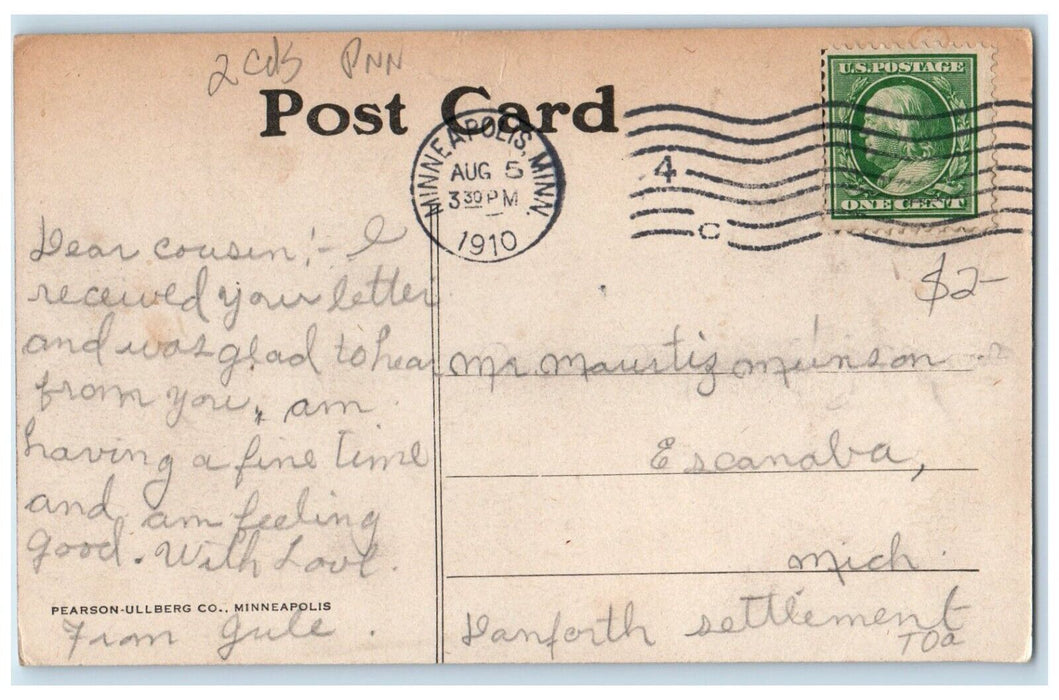 2 cds PNN
Post Card
U.S. POSTAGE
ONE CENT
MINNEAPOLIS, MINN.
AUG 5
3 30 PM
1910
4
C
$2-
Dear cousin!- I
received your letter
and was glad to hear
from you, am
having a fine time
and am feeling
good. With Love.
From Jule.
Mr. Mauritz Munson
Escanaba,
Mich.
Danforth settlement
TOa
PEARSON-ULLBERG CO., MINNEAPOLIS